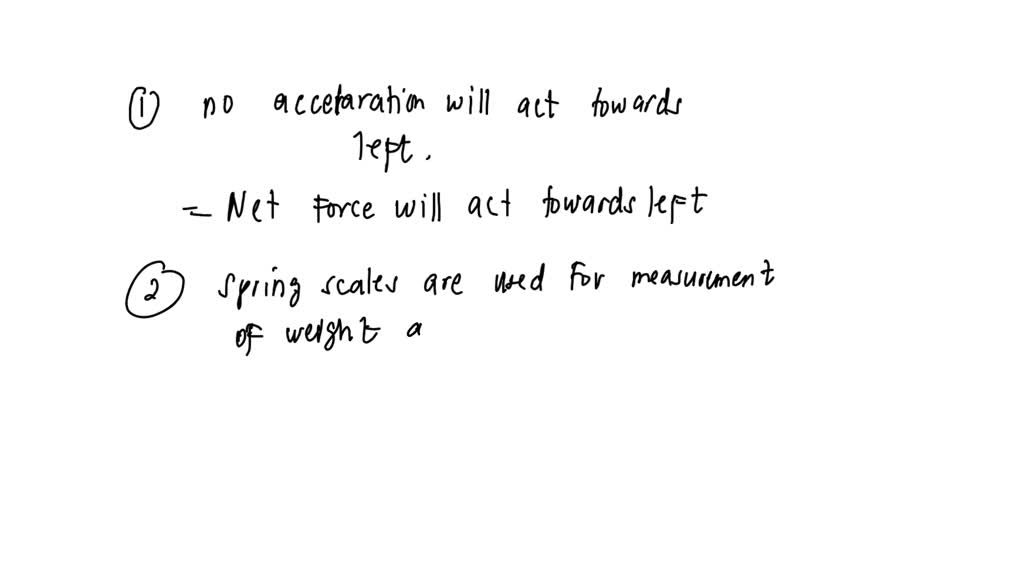 ① no accelaration will act towards
lept.
= Net Force will act towards left
② spring scales are used for measurement
of weight a